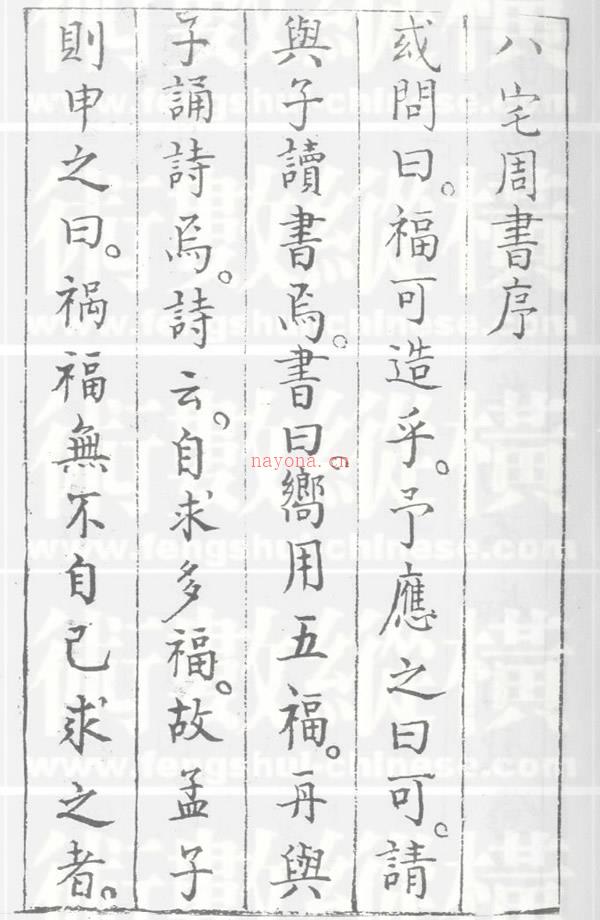 八宅周書序
或問曰。福可造乎。予應之曰可。請
與子讀書焉。書曰。嚮用五福。再與
子誦詩焉。詩云。自求多福。故孟子
則申之曰。禍福無不自己求之者。
nayona.cn
www.fengshui-chinese.com
www.fengshui-chinese.com
www.fengshui-chinese.com
www.fengshui-chinese.com